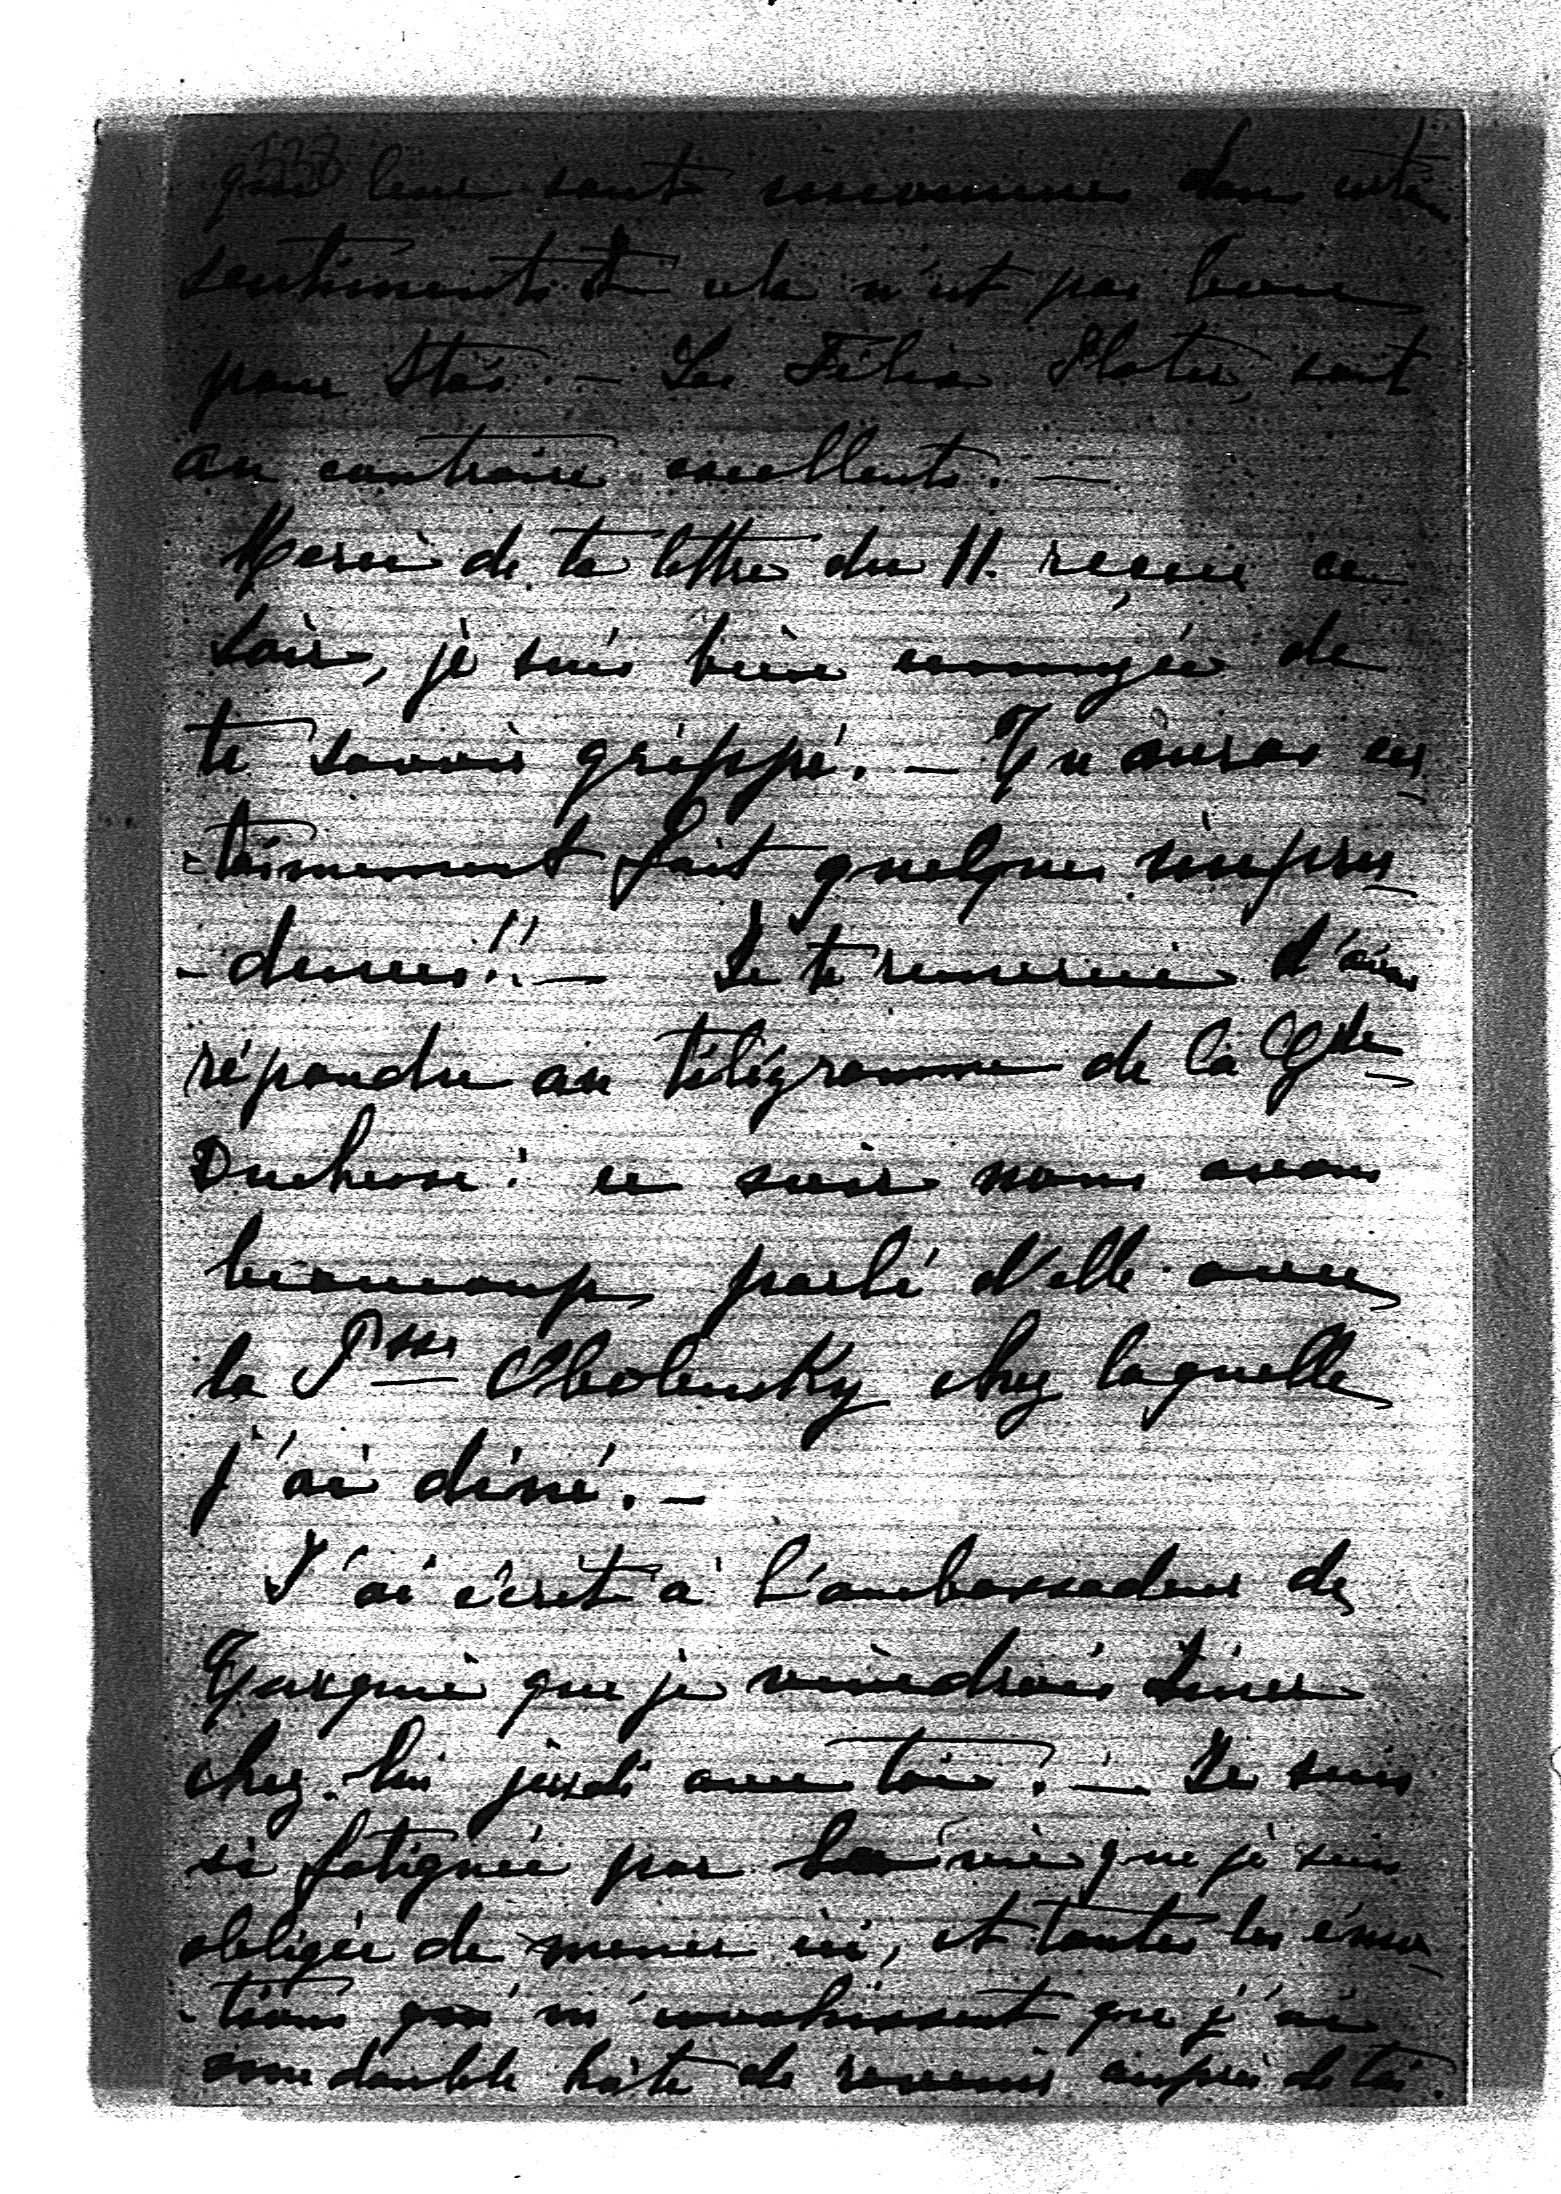 qui leur sont inconnues dans
sentiments et cela n'est pas bon
pour Stas. — Les Félix Plater, sont
au contraire excellents. —
Merci de ta lettre du 11. reçue ce
soir, je suis bien ennuyée de
te savoir grippé. — Tu auras cer
-tainement fait quelques impru
-dences!! — Je te remercie d'avoir
répondu au télégramme de la Gde
Duchesse: ce soir nous avons
beaucoup parlé d'elle avec
la Psse Obolensky chez laquelle
j'ai dîné. —
J'ai écrit à l'ambassadeur de
Turquie que je viendrais dîner
chez lui jeudi avec toi. — Je suis
si fatiguée par la vie que je suis
obligée de mener ici, et toutes les émo
-tions qui m'envahissent que j'ai
une double hâte de revenir auprès de toi.